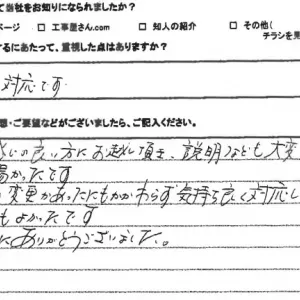 て当社をお知りになられましたか？
ページ □ 工事屋さん.com □ 知人の紹介 □ その他(
チラシを見
するにあたって、重視した点はありますか？
対応です
想・ご要望などがございましたら、ご記入ください。
感じの良い方にお越し頂き、説明なども大変
かったです
変更があったにもかかわらず気持ち良く対応し
もよかったです
にありがとうございました。